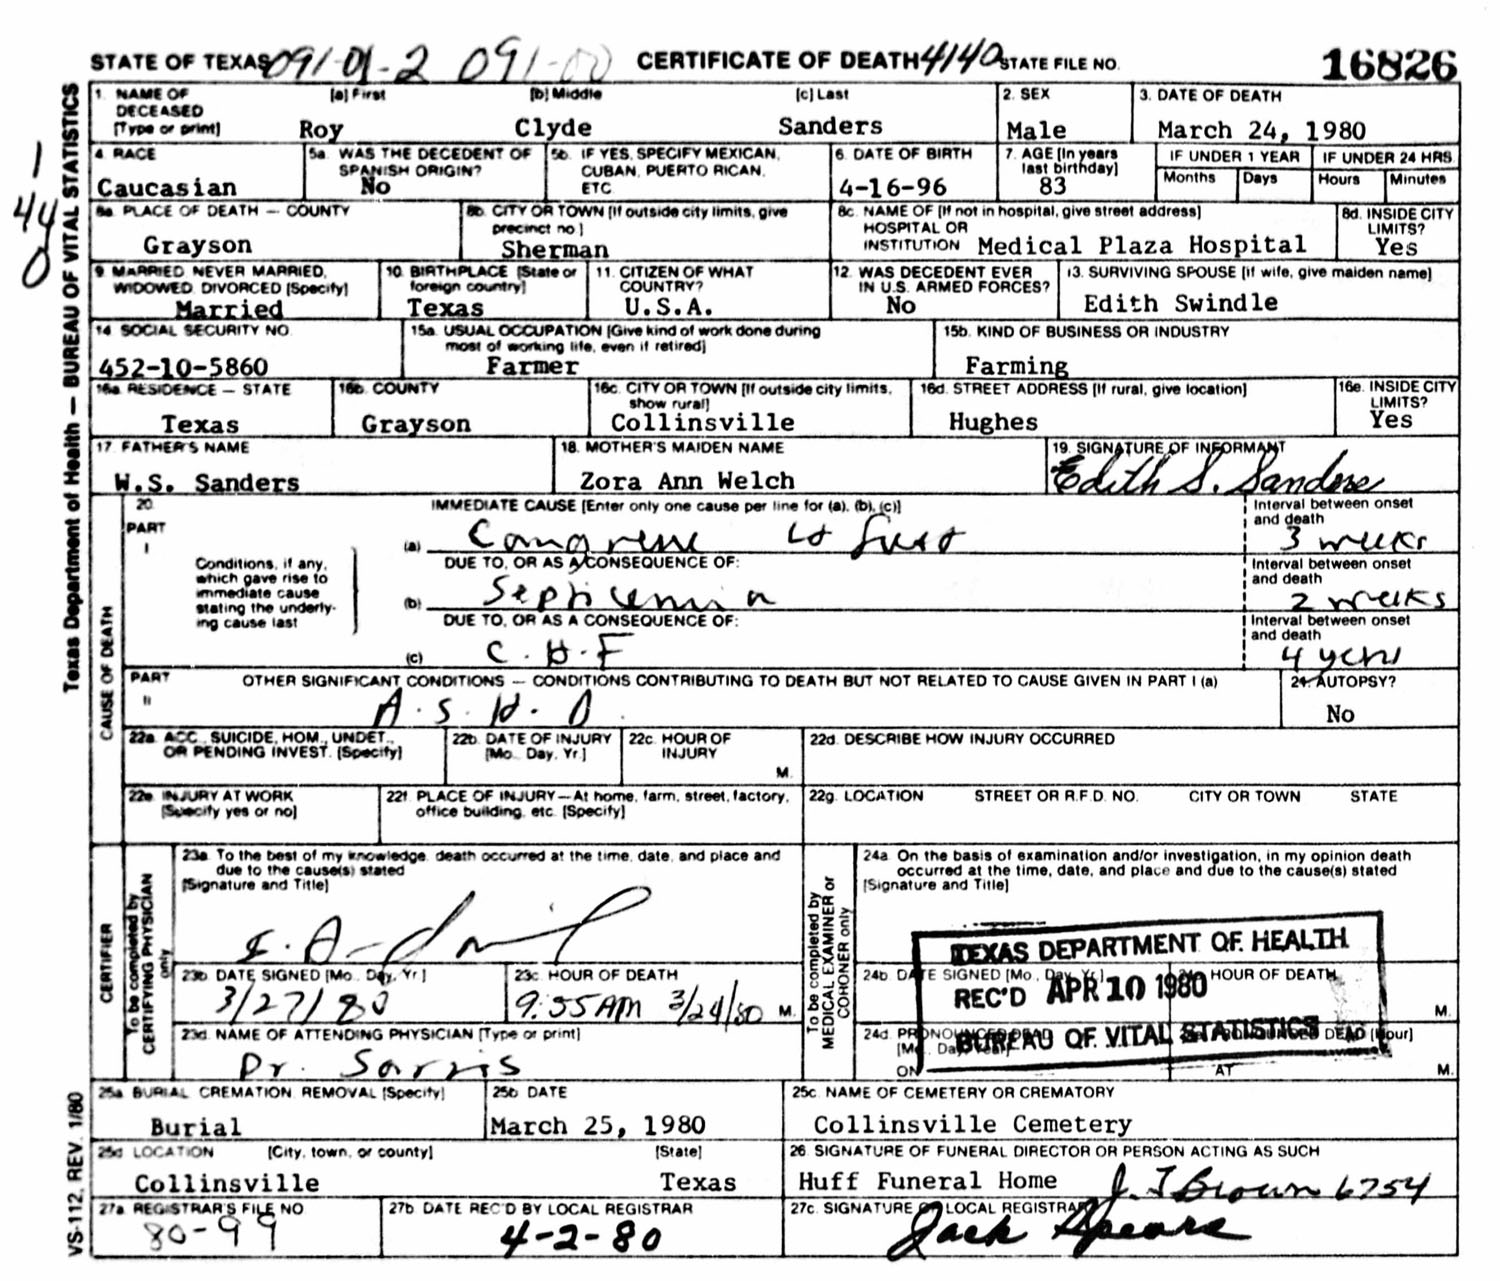 STATE OF TEXAS 091-01-2 091-00 CERTIFICATE OF DEATH 4140 STATE FILE NO. 16826
Texas Department of Health — BUREAU OF VITAL STATISTICS
1
44
0
1. NAME OF DECEASED [Type or print] [a] First [b] Middle [c] Last 2. SEX 3. DATE OF DEATH
Roy Clyde Sanders Male March 24, 1980
4. RACE 5a. WAS THE DECEDENT OF SPANISH ORIGIN? 5b. IF YES, SPECIFY MEXICAN, CUBAN, PUERTO RICAN, ETC 6. DATE OF BIRTH 7. AGE [In years last birthday] IF UNDER 1 YEAR Months Days IF UNDER 24 HRS. Hours Minutes
Caucasian No 4-16-96 83
8a. PLACE OF DEATH — COUNTY 8b. CITY OR TOWN [If outside city limits, give precinct no.] 8c. NAME OF [If not in hospital, give street address] HOSPITAL OR INSTITUTION 8d. INSIDE CITY LIMITS?
Grayson Sherman Medical Plaza Hospital Yes
9. MARRIED NEVER MARRIED, WIDOWED DIVORCED [Specify] 10. BIRTHPLACE [State or foreign country] 11. CITIZEN OF WHAT COUNTRY? 12. WAS DECEDENT EVER IN U.S. ARMED FORCES? 13. SURVIVING SPOUSE [if wife, give maiden name]
Married Texas U.S.A. No Edith Swindle
14. SOCIAL SECURITY NO. 15a. USUAL OCCUPATION [Give kind of work done during most of working life, even if retired] 15b. KIND OF BUSINESS OR INDUSTRY
452-10-5860 Farmer Farming
16a. RESIDENCE — STATE 16b. COUNTY 16c. CITY OR TOWN [If outside city limits, show rural] 16d. STREET ADDRESS [If rural, give location] 16e. INSIDE CITY LIMITS?
Texas Grayson Collinsville Hughes Yes
17. FATHER'S NAME 18. MOTHER'S MAIDEN NAME 19. SIGNATURE OF INFORMANT
W.S. Sanders Zora Ann Welch Edith S. Sanders
CAUSE OF DEATH
20. PART I IMMEDIATE CAUSE [Enter only one cause per line for (a), (b), (c)] Interval between onset and death
Conditions, if any, which gave rise to immediate cause stating the underlying cause last
(a) 3 weeks
DUE TO, OR AS A CONSEQUENCE OF: Interval between onset and death
(b) Septicemia 2 weeks
DUE TO, OR AS A CONSEQUENCE OF: Interval between onset and death
(c) C.H.F 4 years
PART II OTHER SIGNIFICANT CONDITIONS — CONDITIONS CONTRIBUTING TO DEATH BUT NOT RELATED TO CAUSE GIVEN IN PART I (a) 21. AUTOPSY?
A.S.H.D. No
22a. ACC., SUICIDE, HOM., UNDET., OR PENDING INVEST. [Specify] 22b. DATE OF INJURY [Mo., Day, Yr.] 22c. HOUR OF INJURY M. 22d. DESCRIBE HOW INJURY OCCURRED
22e. INJURY AT WORK [Specify yes or no] 22f. PLACE OF INJURY—At home, farm, street, factory, office building, etc. [Specify] 22g. LOCATION STREET OR R.F.D. NO. CITY OR TOWN STATE
CERTIFIER
To be completed by CERTIFYING PHYSICIAN only
23a. To the best of my knowledge, death occurred at the time, date, and place and due to the cause(s) stated [Signature and Title]
23b. DATE SIGNED [Mo., Day, Yr.] 23c. HOUR OF DEATH
3/27/80 9:55AM 3/24/80 M.
23d. NAME OF ATTENDING PHYSICIAN [Type or print]
Dr. Sarris
To be completed by MEDICAL EXAMINER or CORONER only
24a. On the basis of examination and/or investigation, in my opinion death occurred at the time, date, and place and due to the cause(s) stated [Signature and Title]
24b. DATE SIGNED [Mo., Day, Yr.] HOUR OF DEATH M.
24d. PRONOUNCED DEAD [Mo., Day, Year] ON DEAD [Hour] AT M.
TEXAS DEPARTMENT OF HEALTH
REC'D APR 10 1980
BUREAU OF VITAL STATISTICS
25a. BURIAL CREMATION REMOVAL [Specify] 25b. DATE 25c. NAME OF CEMETERY OR CREMATORY
Burial March 25, 1980 Collinsville Cemetery
25d. LOCATION [City, town, or county] [State] 26. SIGNATURE OF FUNERAL DIRECTOR OR PERSON ACTING AS SUCH
Collinsville Texas Huff Funeral Home J. T. Brown 6754
27a. REGISTRAR'S FILE NO 27b. DATE REC'D BY LOCAL REGISTRAR 27c. SIGNATURE OF LOCAL REGISTRAR
80-99 4-2-80 Jack Speare
VS-112, REV. 1/80